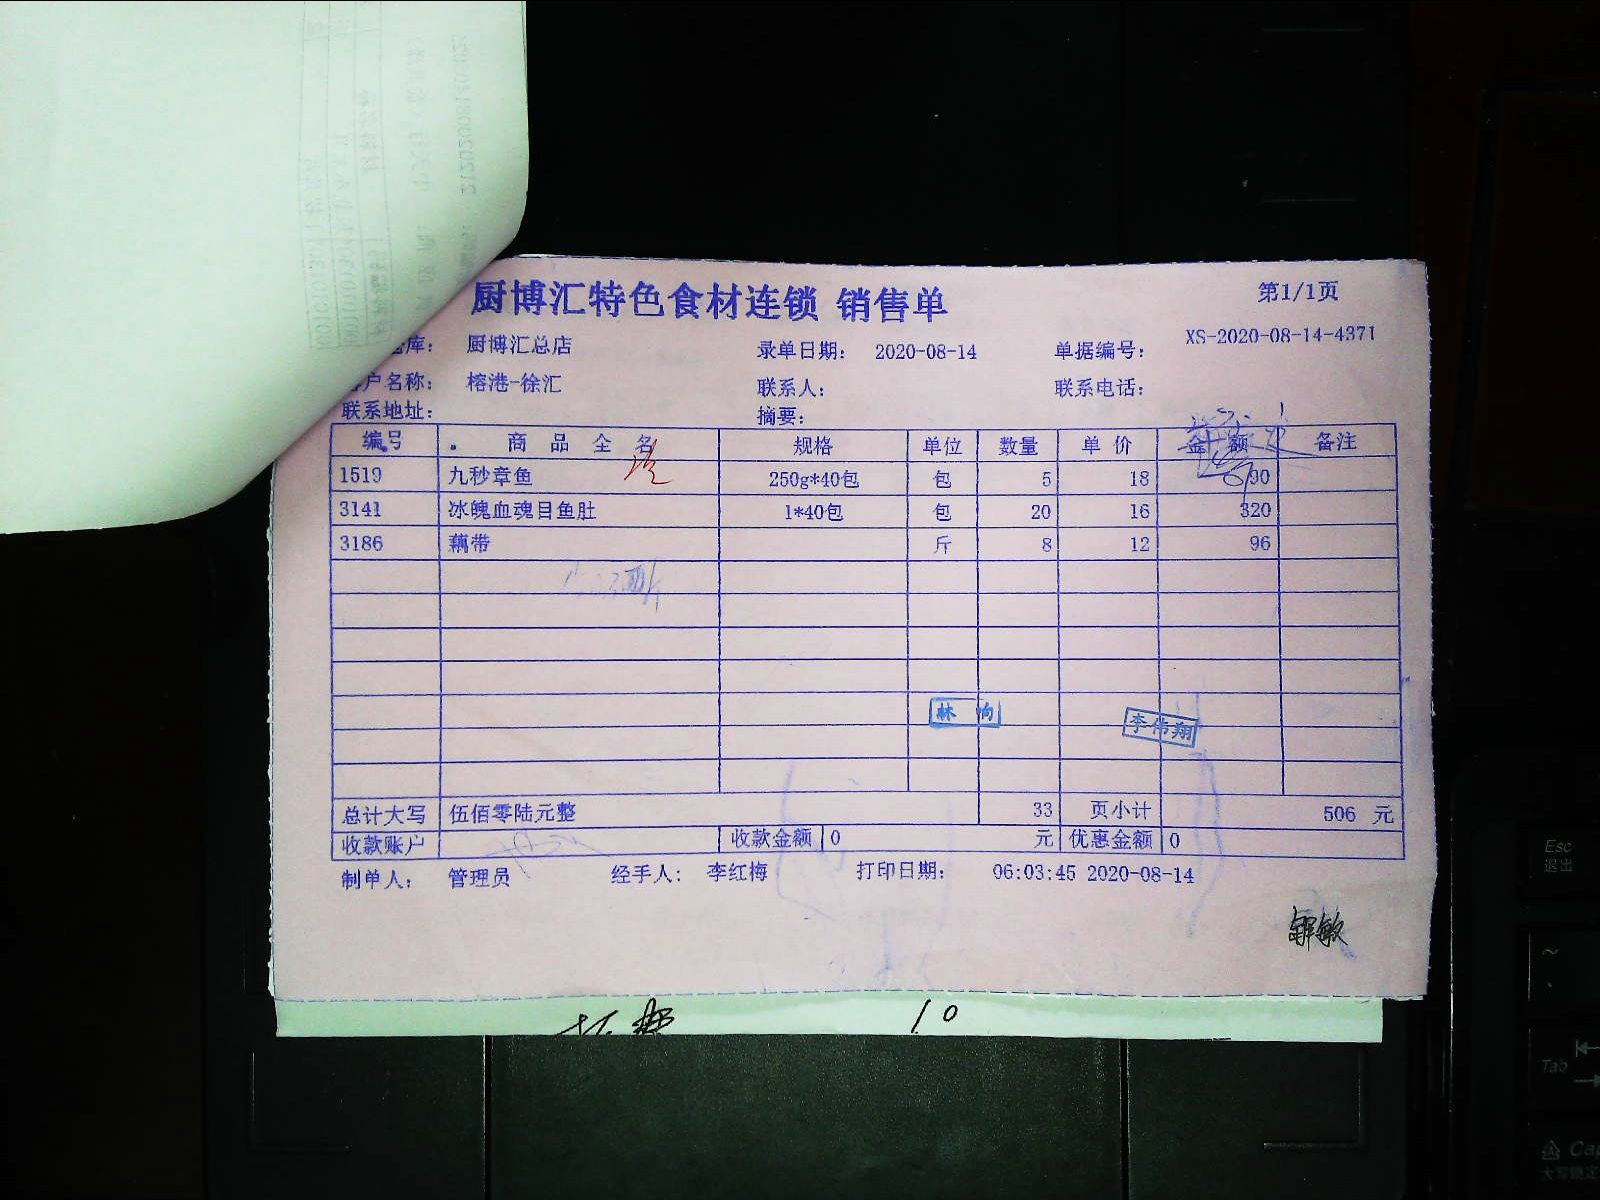 厨博汇特色食材连锁 销售单
第1/1页
库： 厨博汇总店 录单日期： 2020-08-14 单据编号： XS-2020-08-14-4371
户名称： 榕港-徐汇 联系人： 联系电话：
联系地址： 摘要：
编号 商品全名 规格 单位 数量 单价 金额 备注
1519 九秒章鱼 250g*40包 包 5 18 90
3141 冰魄血魂目鱼肚 1*40包 包 20 16 320
3186 藕带 斤 8 12 96
林 响
李伟翔
总计大写 伍佰零陆元整 33 页小计 506 元
收款账户 收款金额 0 元 优惠金额 0
制单人： 管理员 经手人： 李红梅 打印日期： 06:03:45 2020-08-14
解敏
10
Esc
退出
~
Tab
Cap
大写锁定